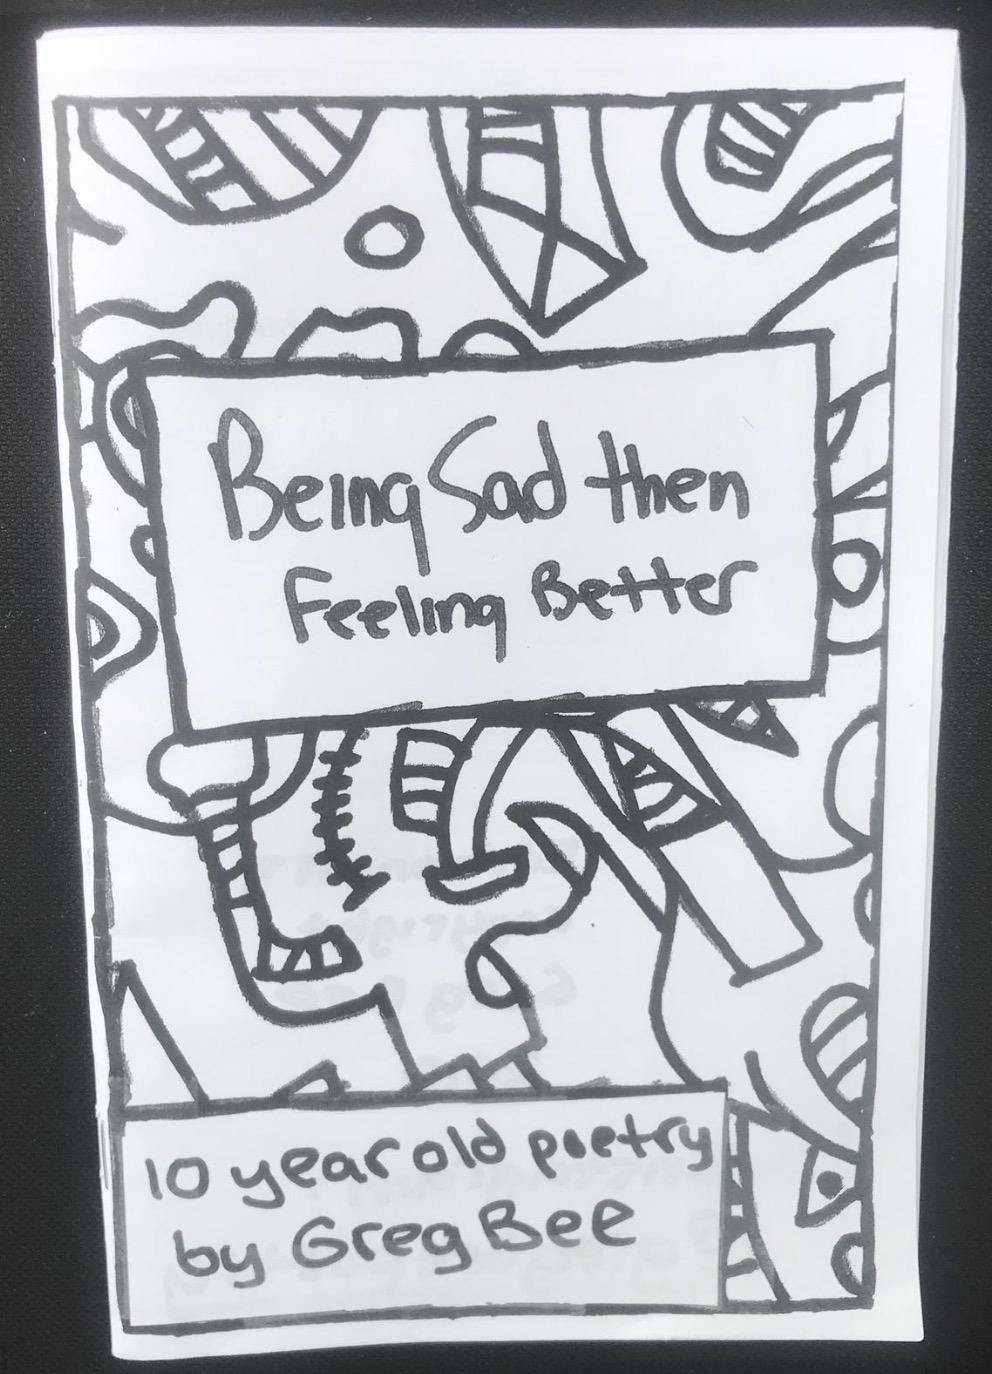 Being Sad then
Feeling Better
10 year old poetry
by Greg Bee